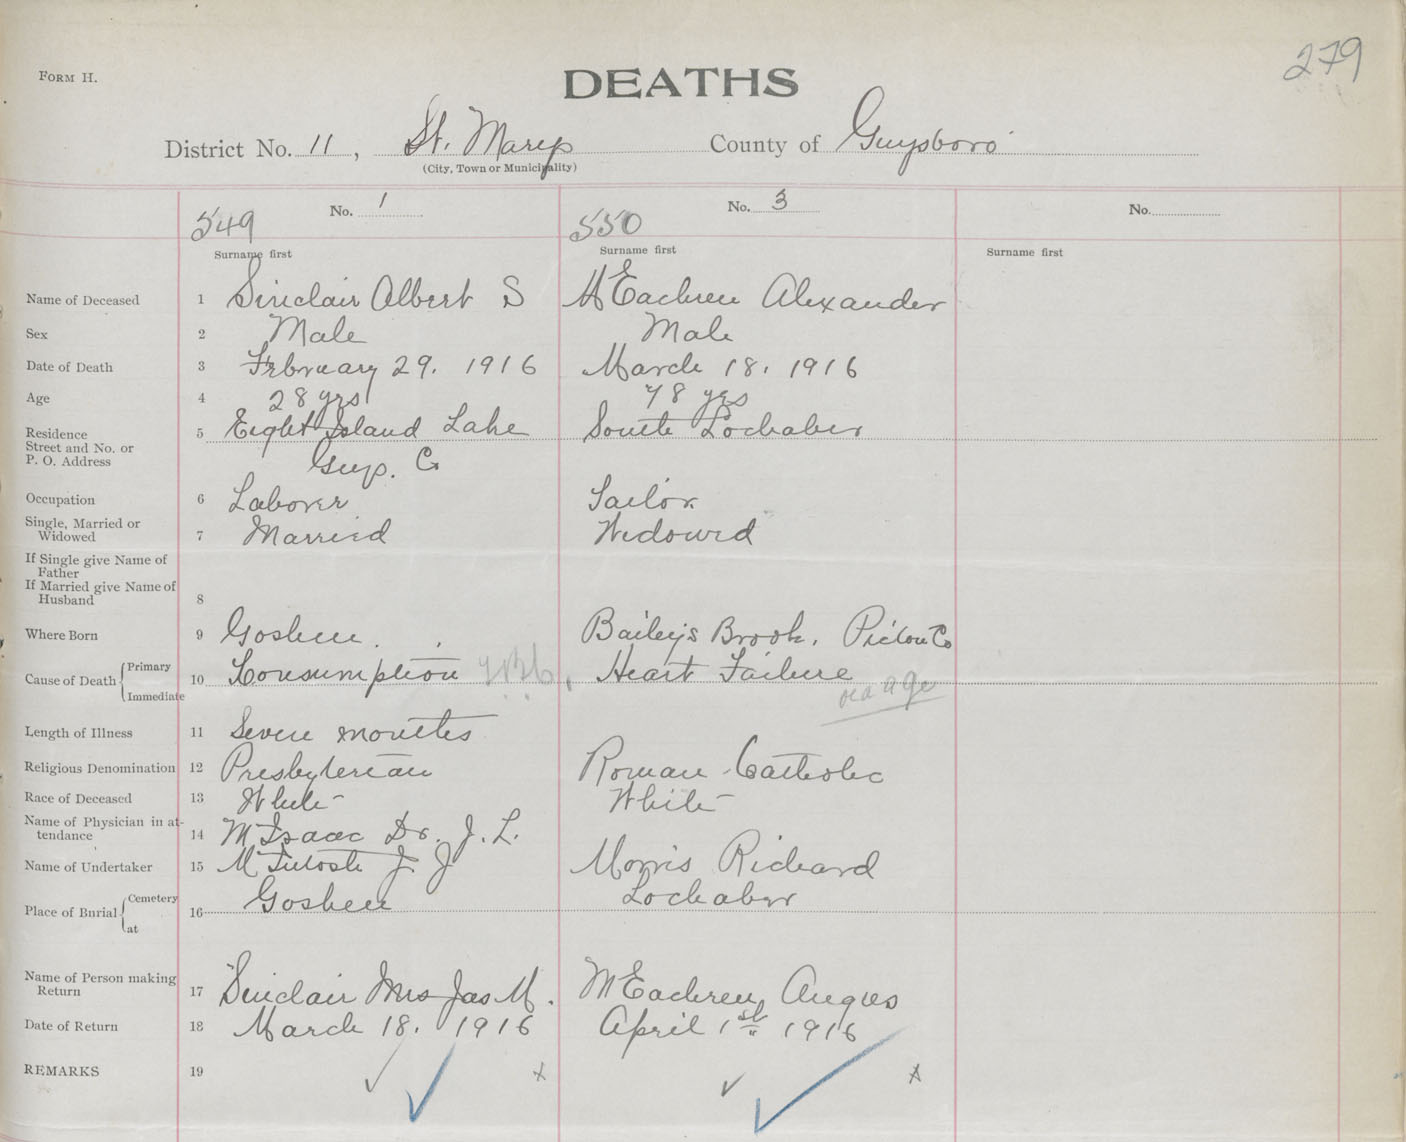 279
FORM H.
DEATHS
District No. 11, St. Marys County of Guysboro
(City, Town or Municipality)
No. 1 No. 3 No.
549 550
Surname first Surname first Surname first
Name of Deceased 1 Sinclair Albert S McEachren Alexander
Sex 2 Male Male
Date of Death 3 February 29. 1916 March 18. 1916
Age 4 28 yrs 78 yrs
Residence 5 Eight Island Lake South Lochaber
Street and No. or
P. O. Address Guys. Co
Occupation 6 Laborer Tailor
Single, Married or
Widowed 7 Married Widowed
If Single give Name of
Father
If Married give Name of
Husband 8
Where Born 9 Goshen. Baileys Brook, Pictou Co
Cause of Death Primary 10 Consumption Heart Failure
Immediate old age
Length of Illness 11 Seven months
Religious Denomination 12 Presbyterian Roman Catholic
Race of Deceased 13 White White
Name of Physician in at-
tendance 14 McIsaac Dr. J. L.
Name of Undertaker 15 McIntosh J J Morris Richard
Place of Burial Cemetery 16 Goshen Lochaber
at
Name of Person making
Return 17 Sinclair Mrs Jas M. McEachren, Angus
Date of Return 18 March 18. 1916 April 1st 1916
REMARKS 19